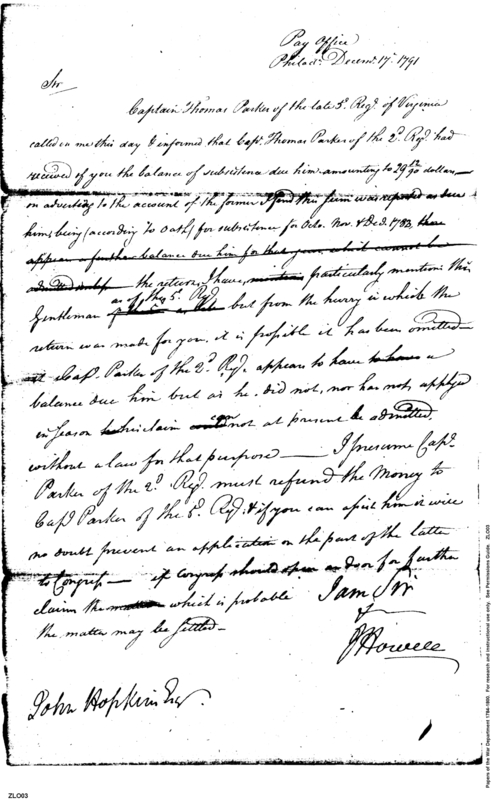 Pay Office
Philad.ª Decem.r 17th 1791
Sir
Captain Thomas Parker of the late 5.th Reg.t of Virginia
called on me this day & informed that Cap.t Thomas Parker of the 2.d Reg.t had
received of you the balance of subsistence due him amounting to 29 12/90 dollars,—
on adverting to the account of the former I find this sum was reported as due
him; being (according to Oath) for subsistence for Octo. Nov. & Dec.r 1782,
appears a further balance due him for that year, which cannot be
admitted the return I have, particularly mentions this
as of the 5.th Reg.t
Gentleman but from the hurry in which the
return was made for you, it is possible it has been omitted—
Cap.t Parker of the 2.d Reg.t appears to have to have a
balance due him but as he did not, nor has not, applied
in season his claim can not at present be admitted
without a law for that purpose — I presume Cap.t
Parker of the 2.d Reg.t must refund the Money to
Cap.t Parker of the 5.th Reg.t & if you can assist him it will
no doubt prevent an application on the part of the latter
to Congress — if Congress should open a door for further
claims the which is probable
the matter may be settled—
I am Sir
J Howell
John Hopkins Esq.r
ZLO03
Papers of the War Department 1784-1800. For research and instructional use only. See Permissions Guide. ZLO03